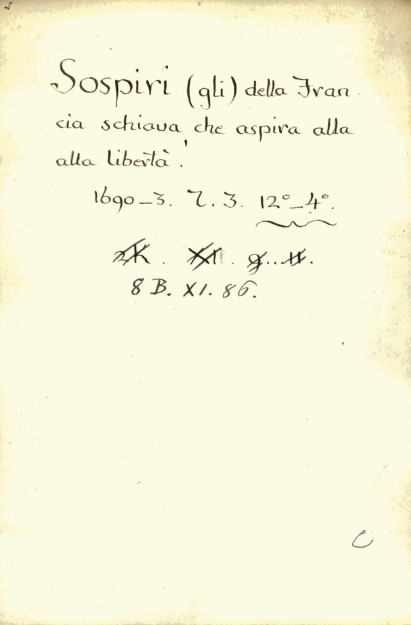 Sospiri (gli) della Fran
cia schiava che aspira alla
alla libertà.
1690_3. T. 3. 12°_4°.
8 B. XI. 86.
C